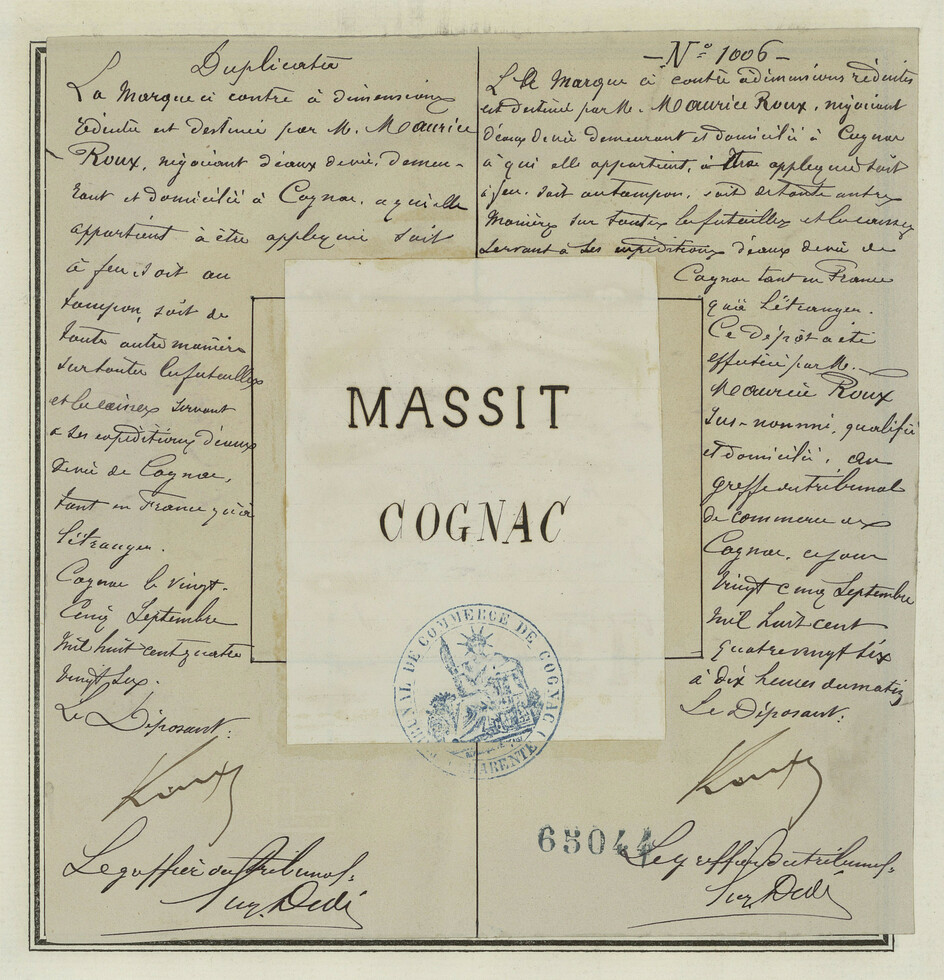 Duplicata
La Marque ci contre à dimensions
réduites est destinée par M. Maurice
Roux, négociant d'eaux de vie, demeu-
rant et domicilié à Cognac, a qui elle
appartient à être appliquée soit
à feu, soit au
tampon, soit de
toute autre manière
sur toutes les futailles
et les caisses servant
à ses expéditions d'eaux
de vie de Cognac,
tant en France qu'à
l'étranger.
Cognac le vingt-
cinq Septembre
Mil huit cent quatre
vingt six.
Le Déposant:
Roux
Le greffier du tribunal.
- N° 1006 -
La Marque ci contre à dimensions réduites
est destinée par M. Maurice Roux, négociant
d'eaux de vie demeurant et domicilié à Cognac
à qui elle appartient, à être appliquée soit
à feu, soit au tampon, soit de toute autre
Manière sur toutes les futailles et les caisses
servant à ses expéditions d'eaux de vie de
Cognac tant en France
qu'à l'étranger.
Ce dépôt a été
effectué par M.
Maurice Roux
sus-nommé, qualifié
et domicilié, au
greffe du tribunal
de commerce de
Cognac, ce jour
vingt cinq Septembre
Mil huit cent
quatre vingt six
à dix heures du matin
Le Déposant.
Roux
Le greffier du tribunal.
MASSIT
COGNAC
TRIBUNAL DE COMMERCE DE COGNAC
CHARENTE
65044